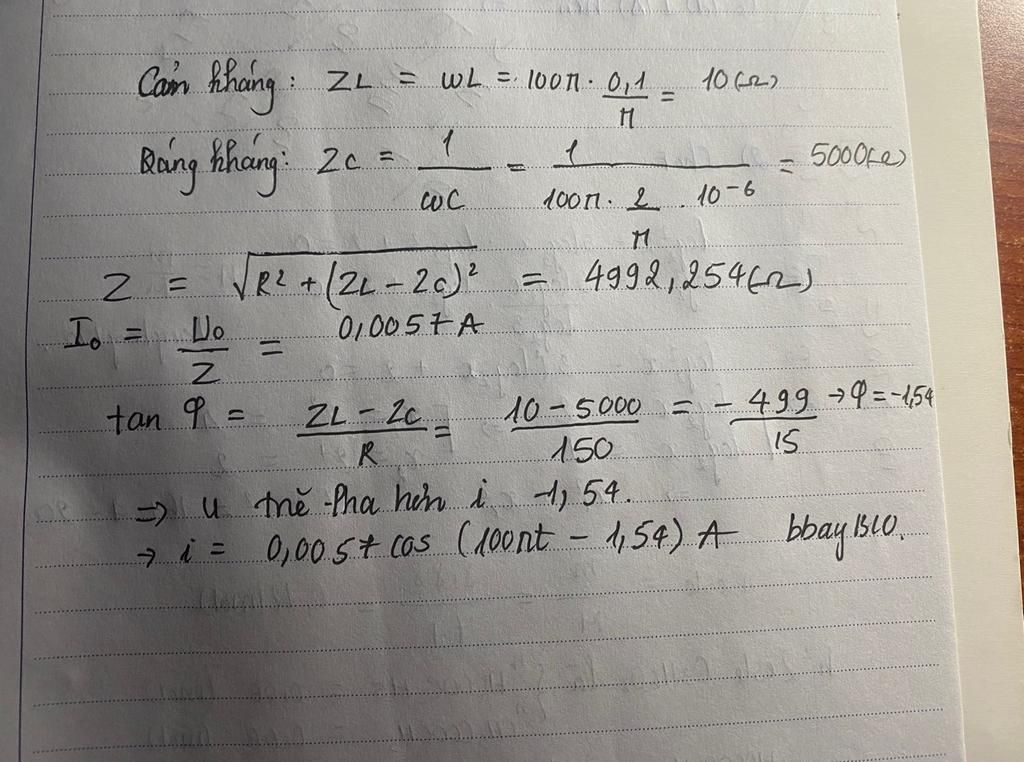 Cảm kháng: ZL = ωL = 100π. 0,1/π = 10(Ω)
Dáng kháng: ZC = 1/ωC = 1/(100π. 2/π . 10^-6) = 5000(Ω)
Z = √(R² + (ZL - ZC)²) = 4992,254(Ω)
I₀ = U₀/Z = 0,0057A
tan φ = (ZL - ZC)/R = (10 - 5000)/150 = - 499/15 → φ = -1,54
=> u trễ pha hơn i -1,54.
→ i = 0,0057 cos (100πt - 1,54) A